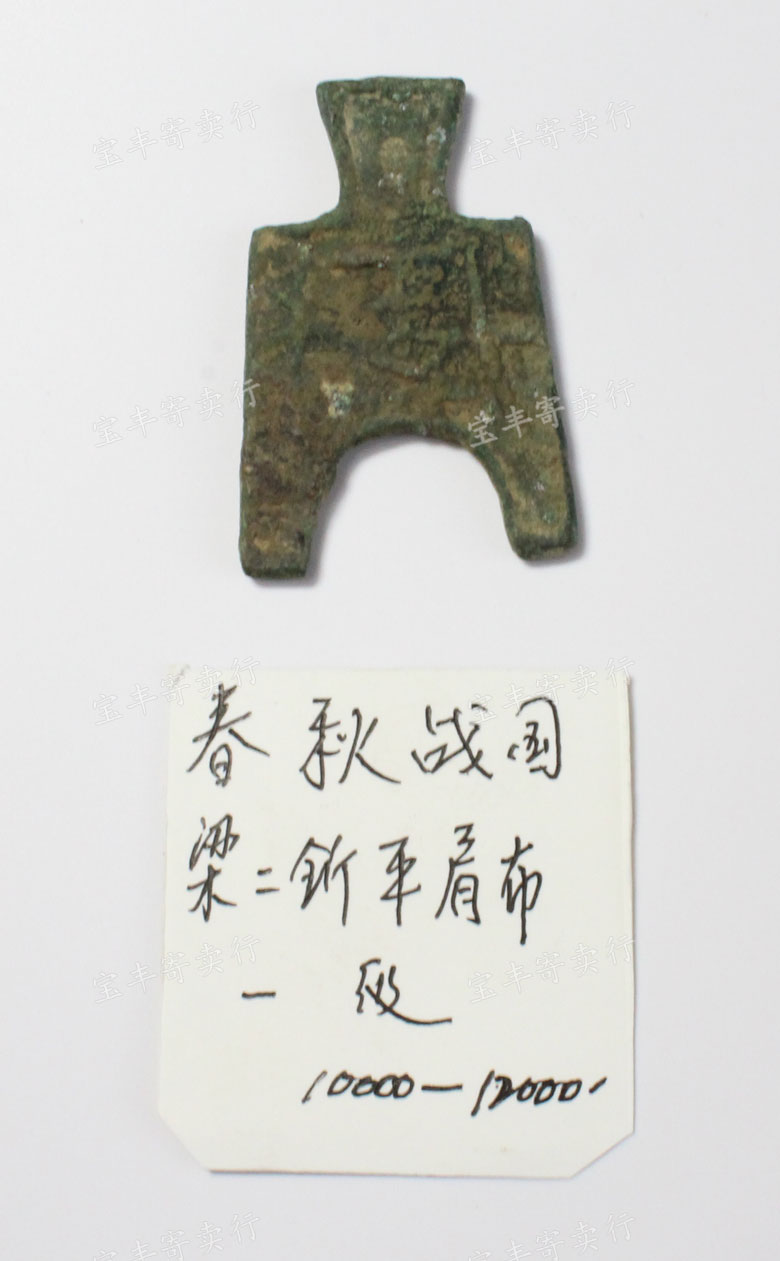 春秋战国
梁二釿平肩布
一级
10000—12000.
宝丰寄卖行
宝丰寄卖行
宝丰寄卖行
宝丰寄卖行
宝丰寄卖行
宝丰寄卖行
宝丰寄卖行
宝丰寄卖行
宝丰寄卖行
宝丰寄卖行